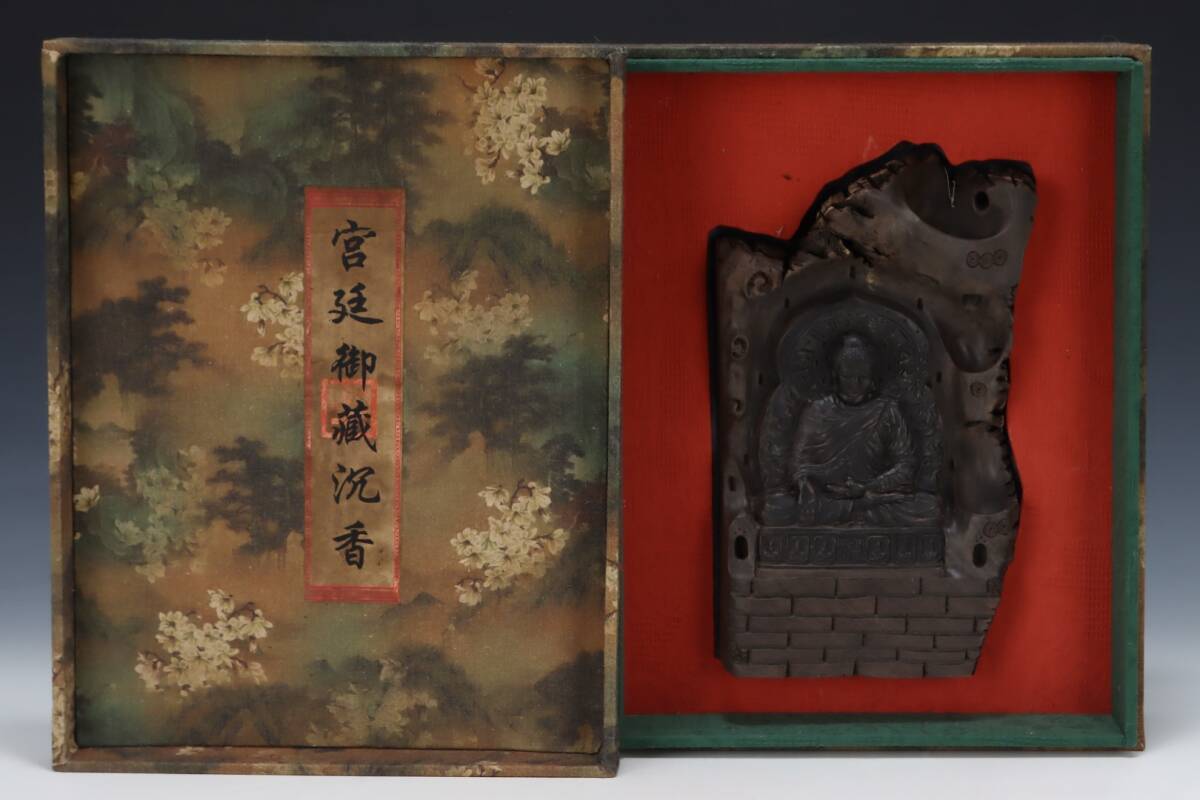 宫廷御藏沉香